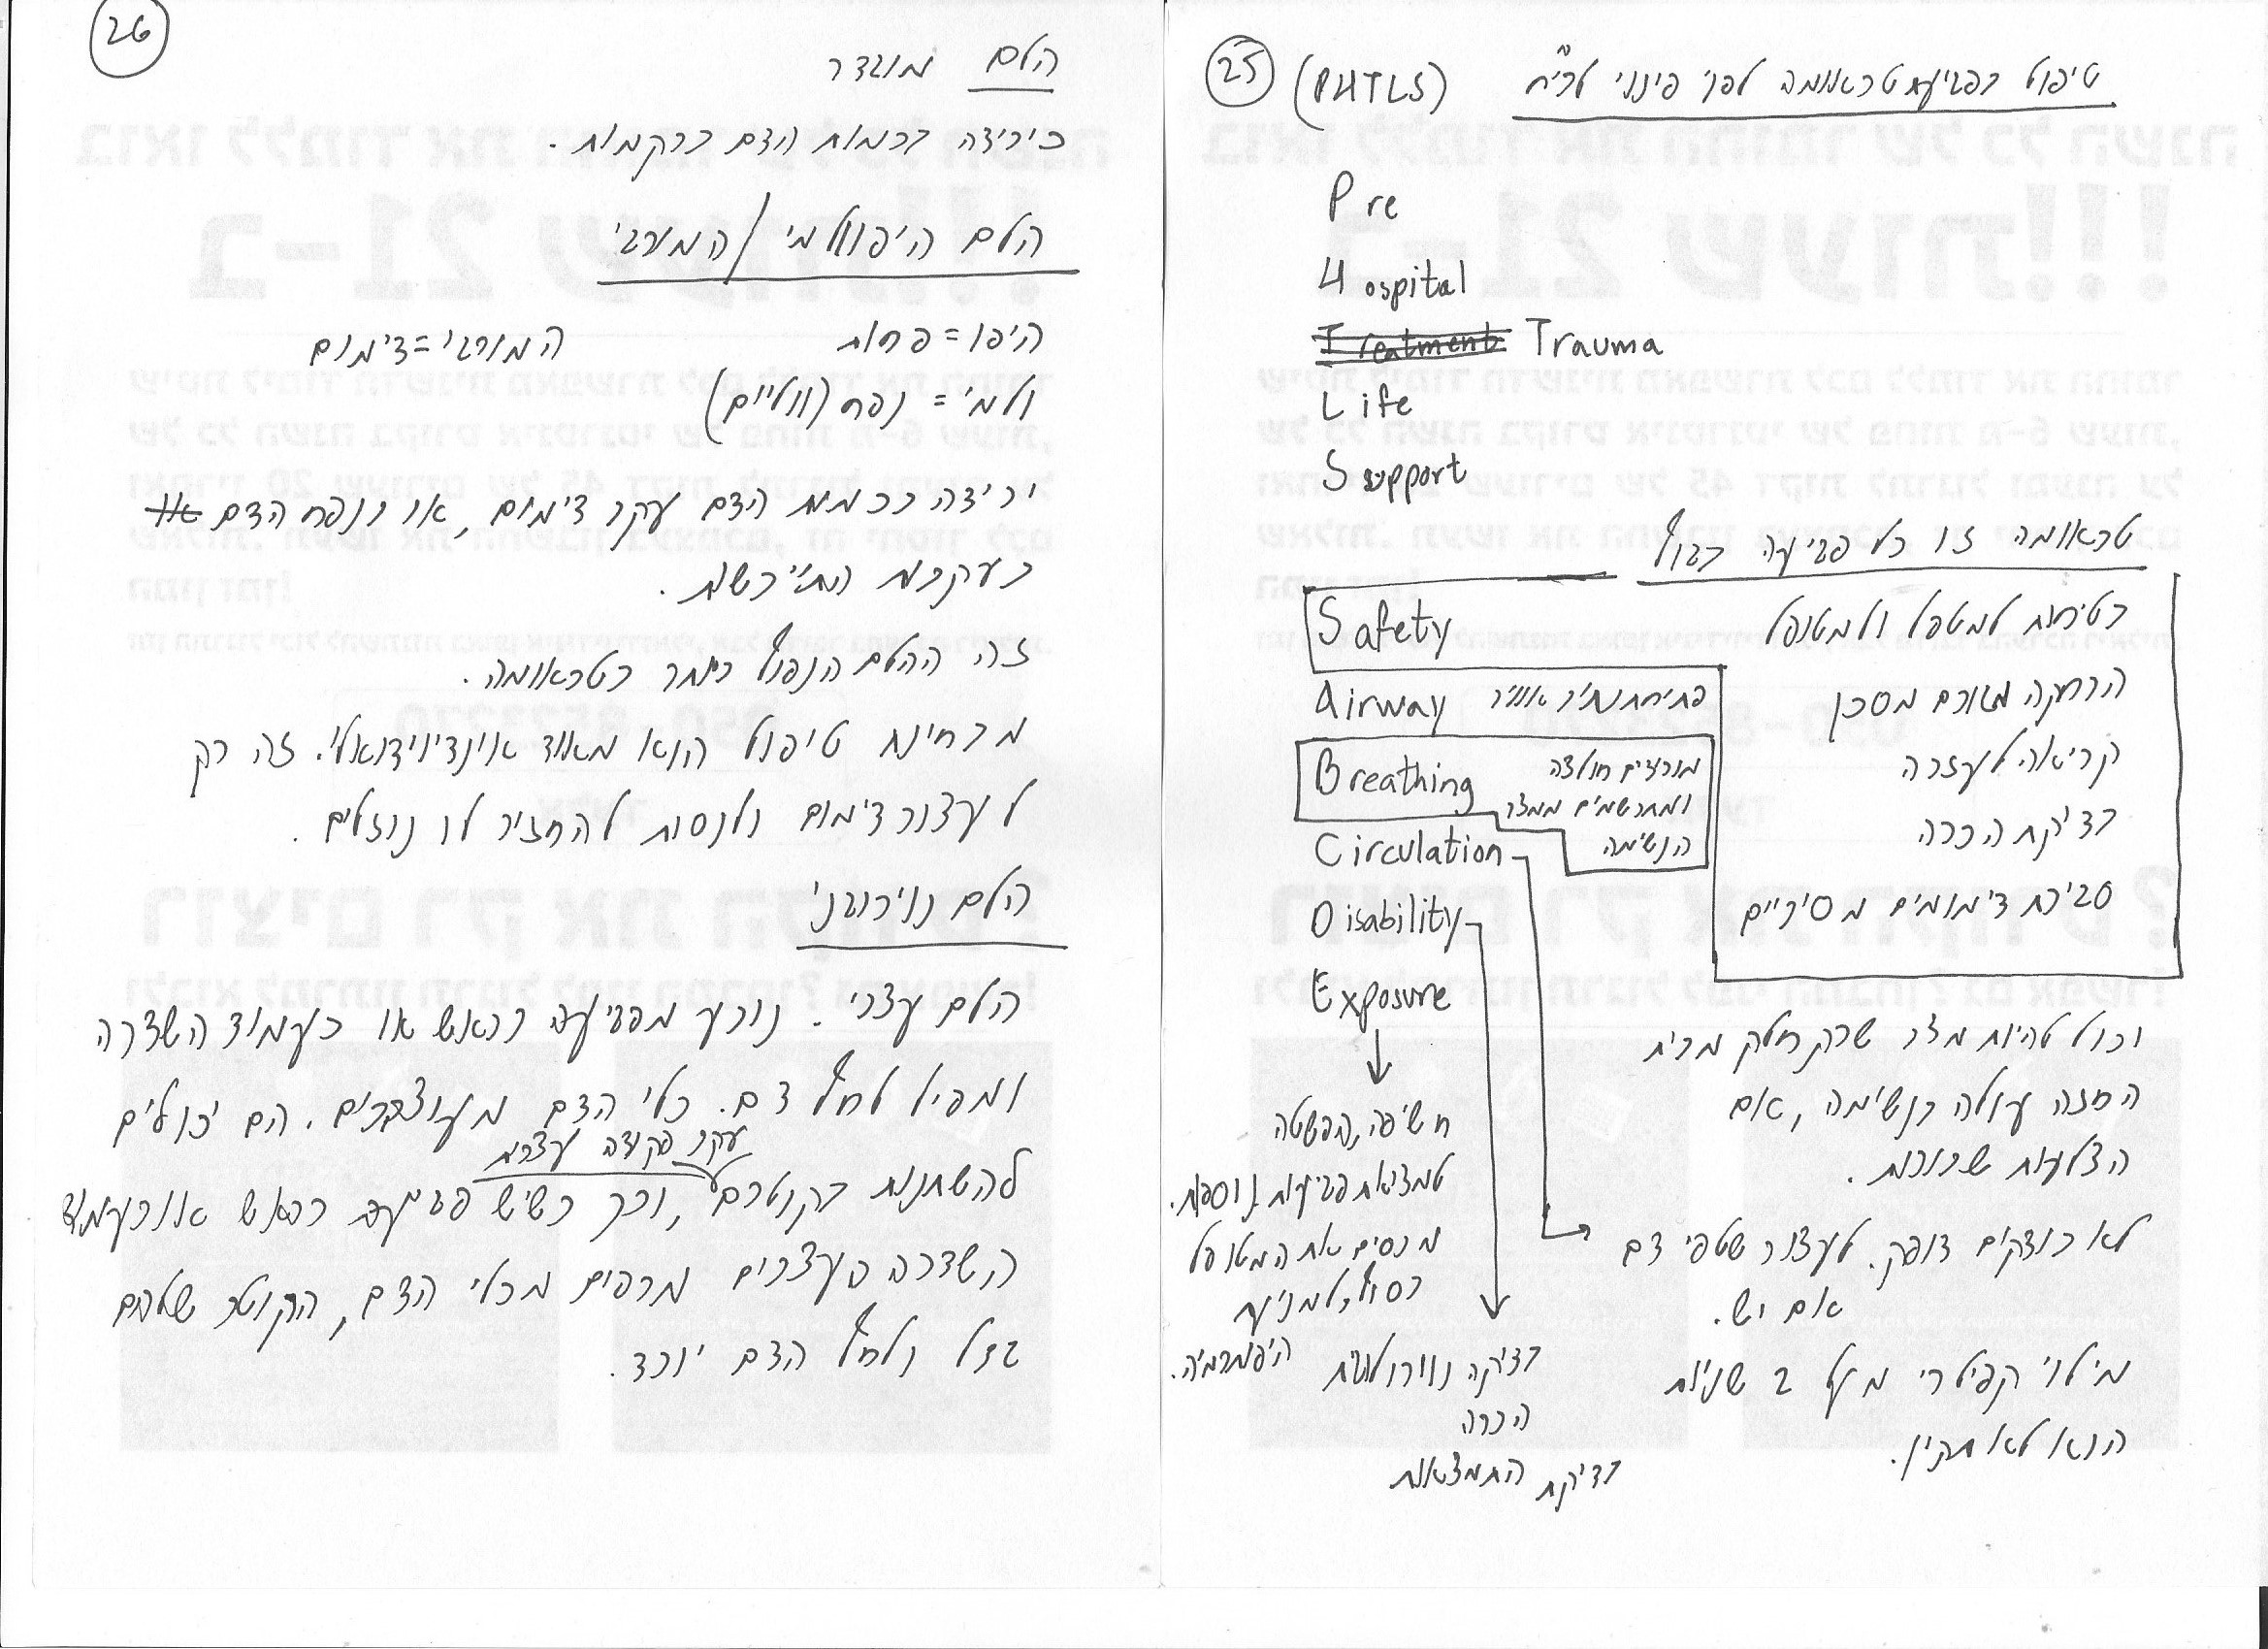 25
טיפול בפגיעת טראומה לפני פינוי לבי"ח (PHTLS)
Pre
Hospital
Treatment Trauma
Life
Support
טראומה זו כל פגיעה בגוף
Safety
בטיחות למטפל ולמטופל
הרחקה מגורם מסכן
קריאה לעזרה
בדיקת הכרה
סגירת דימומים מסיביים
Airway פתיחת נתיב אוויר
Breathing מורידים חולצה
ומתרשמים ממצב
הנשימה
Circulation
Disability
Exposure
יכול להיות מצב שרק חלק מבית
החזה עולה בנשימה, אם
הצלעות שבורות.
לא בודקים דופק. לעצור שטפי דם
אם יש.
מילוי קפילרי מעל 2 שניות
הוא לא תקין.
חשיפה, הפשטה
למציאת פגיעות נוספות.
מכסים את המטופל
בסוף, למניעת
היפותרמיה.
בדיקה נוירולוגית
הכרה
בדיקת התמצאות
26
הלם מוגדר
כירידה בכמות הדם ברקמות.
הלם היפוולמי / המורגי
היפו=פחות
המורגי=דימום
וולמי = נפח (ווליום)
ירידה בכמות הדם עקב דימום, או בנפח הדם
בעקבות התייבשות.
זה ההלם הנפוץ ביותר בטראומה.
מבחינת טיפול הוא מאוד אינדיוידואלי. זה רק
לעצור דימום ולנסות להחזיר לו נוזלים.
הלם נוירוגני
הלם עצבי. נובע מפגיעה בראש או בעמוד השדרה
ומפיל לחץ דם. כלי הדם מעוצבבים. הם יכולים
להשתנות בקוטרם עקב פקודה עצבית, וכך כשיש פגיעה בראש או בעמוד
השדרה העצבים מרפים מכלי הדם, הקוטר שלהם
גדל ולחץ הדם יורד.